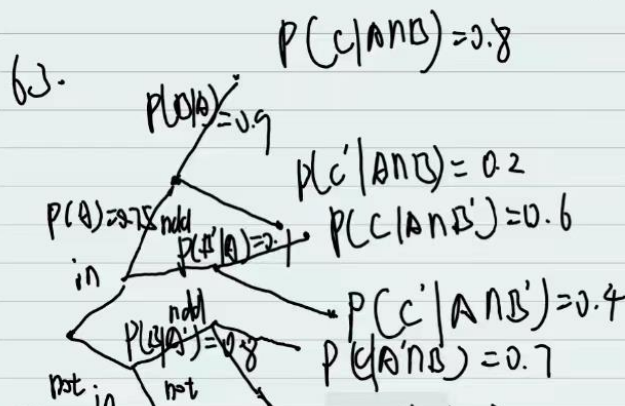 P(C|A∩B)=0.8
63.
P(B|A)=0.9
P(C'|A∩B)=0.2
P(A)=0.75
P(C|A∩B')=0.6
P(B'|A)=0.1
in
P(C'|A∩B')=0.4
P(B|A')=0.8
P(C|A'∩B)=0.7
not in
not